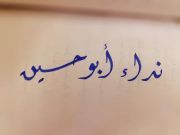 نداء أبو حسين